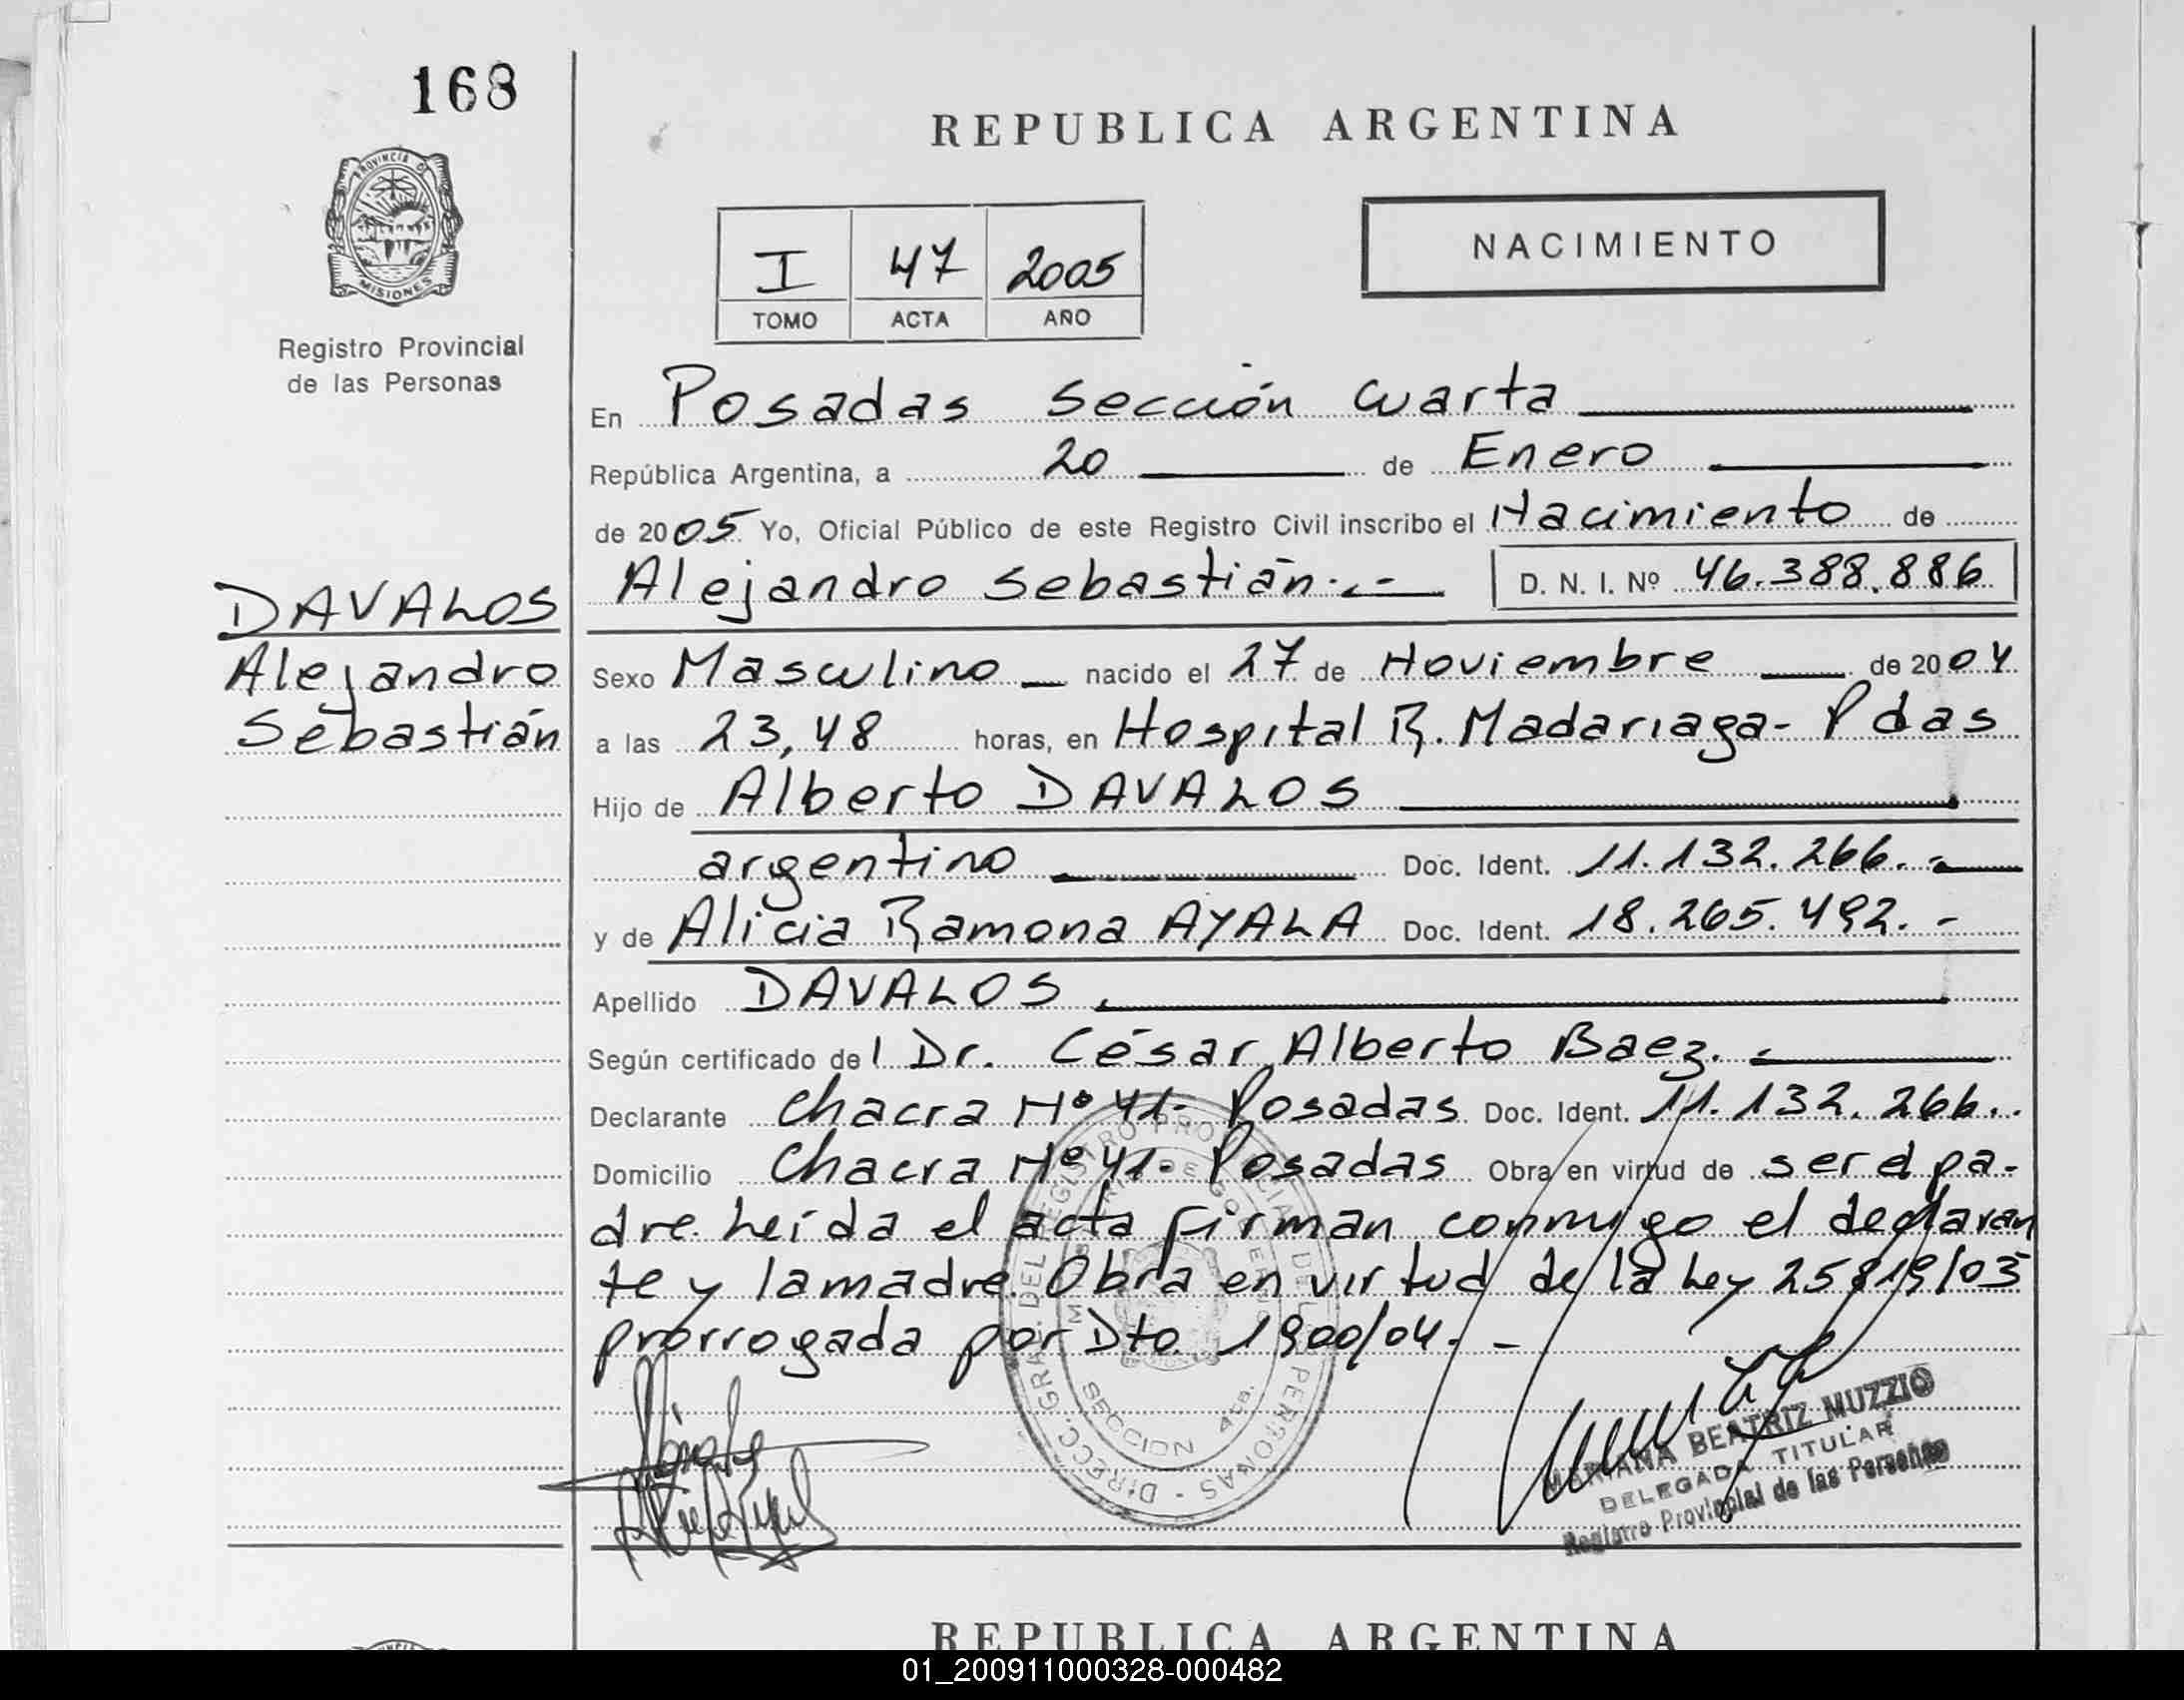 168
REPUBLICA ARGENTINA
PROVINCIA D
MISIONES
Registro Provincial
de las Personas
I 47 2005
TOMO ACTA AÑO
NACIMIENTO
En Posadas Sección Cuarta
República Argentina, a 20 de Enero
de 2005 Yo, Oficial Público de este Registro Civil inscribo el Nacimiento de
Alejandro Sebastián.-- D. N. I. Nº 46.388.886
DAVALOS
Alejandro
Sebastián
Sexo Masculino nacido el 27 de Noviembre de 2004
a las 23,48 horas, en Hospital R. Madariaga- Pdas
Hijo de Alberto DAVALOS
argentino Doc. Ident. 11.132.266.-
y de Alicia Ramona AYALA Doc. Ident. 18.265.492.-
Apellido DAVALOS.
Según certificado del Dr. César Alberto Baez.-
Declarante Chacra Nº 41- Posadas Doc. Ident. 11.132.266..
Domicilio Chacra Nº 41- Posadas Obra en virtud de ser el pa-
dre. Leída el acta firman conmigo el declaran
te y la madre. Obra en virtud de la Ley 25819/03
prorrogada por Dto. 1900/04.-
DIRECC. GRAL. DEL REGISTRO PROVINCIAL DE LAS PERSONAS
SECCION 4ta.
MARIANA BEATRIZ MUZZIO
DELEGADA TITULAR
Registro Provincial de las Personas
REPUBLICA ARGENTINA
01_200911000328-000482